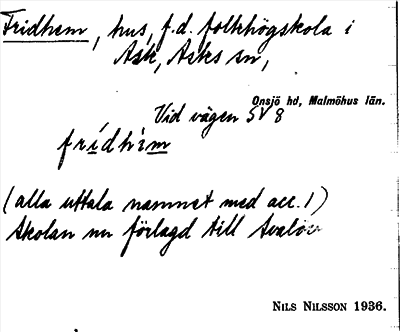 Fridhem, hus, f.d. folkhögskola i
Ask, Asks sn,
Onsjö hd, Malmöhus län.
Vid vägen SV 8
frídhèm
(alla uttala namnet med acc. 1)
Skolan nu förlagd till Svalöv
NILS NILSSON 1936.